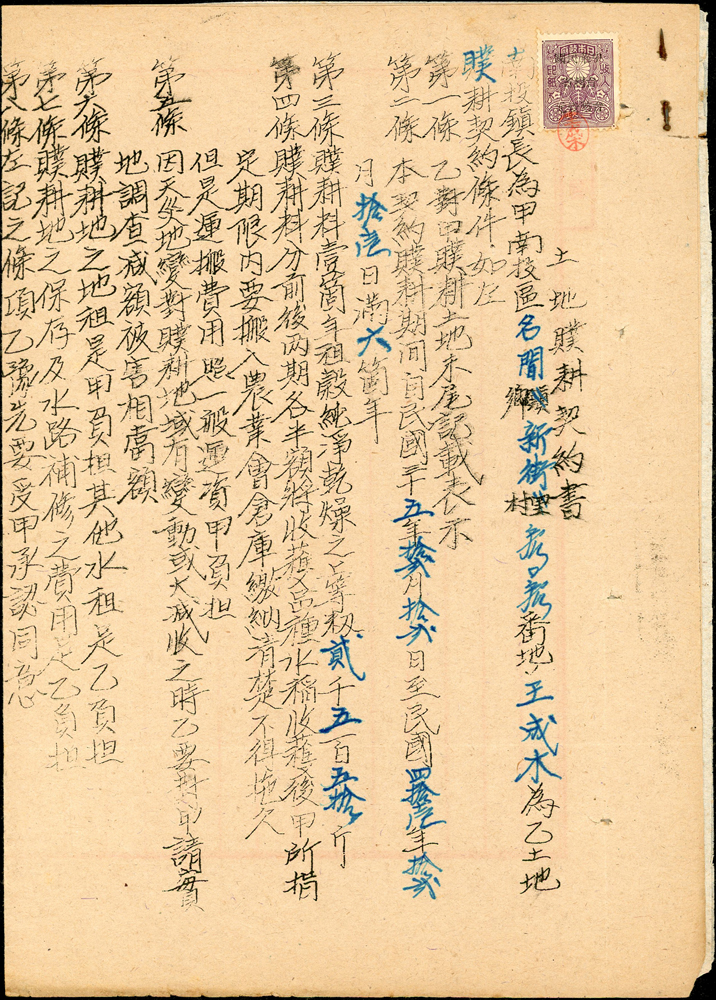 土地贌耕契約書
南投鎮長為甲南投區名間鄉鎮新街村里番地王成木為乙土地
贌耕契約條件如左
第一條 乙對甲贌耕土地末尾記載表示
第二條 本契約贌耕期間自民國三十五年拾弍月拾弍日至民國四拾壱年拾弍
月拾壱日滿六箇年
第三條贌耕料壹箇年租穀純淨乾燥之上等籾貳千五百五拾斤
第四條贌耕料分前後兩期各半額將收穫品種水稻收穫後甲所指
定期限內要搬入農業會倉庫繳納清楚不得拖欠
但是運搬費用照一般運資甲負担
第五條 因天災地變對贌耕地域有變動或大減收之時乙要對甲請實
地調查減額被害相當額
第六條贌耕地之地租是甲負担其他水租是乙負担
第七條贌耕地之保存及水路補修之費用是乙負担
第八條左記之條項乙豫先要受甲承認同意